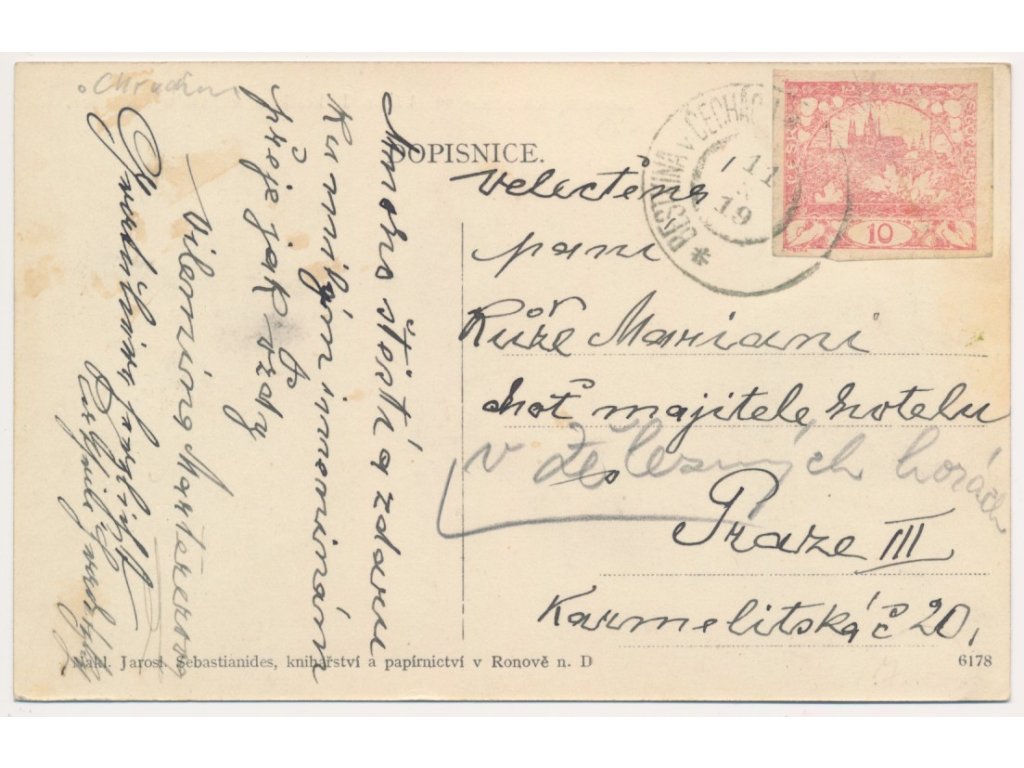 DOPISNICE.
Mnoho štěstí a zdaru
Ku milým jmeninám
přeje jak vždy
Vilemína
Velectěná
paní
Růže Mariani
choť majitele hotelu
v Železných horách
Praze III
Karmelitská č 20,
V ČECHÁCH
11
19
10
Nakl. Jarosl. Sebastianides, knihařství a papírnictví v Ronově n. D
6178